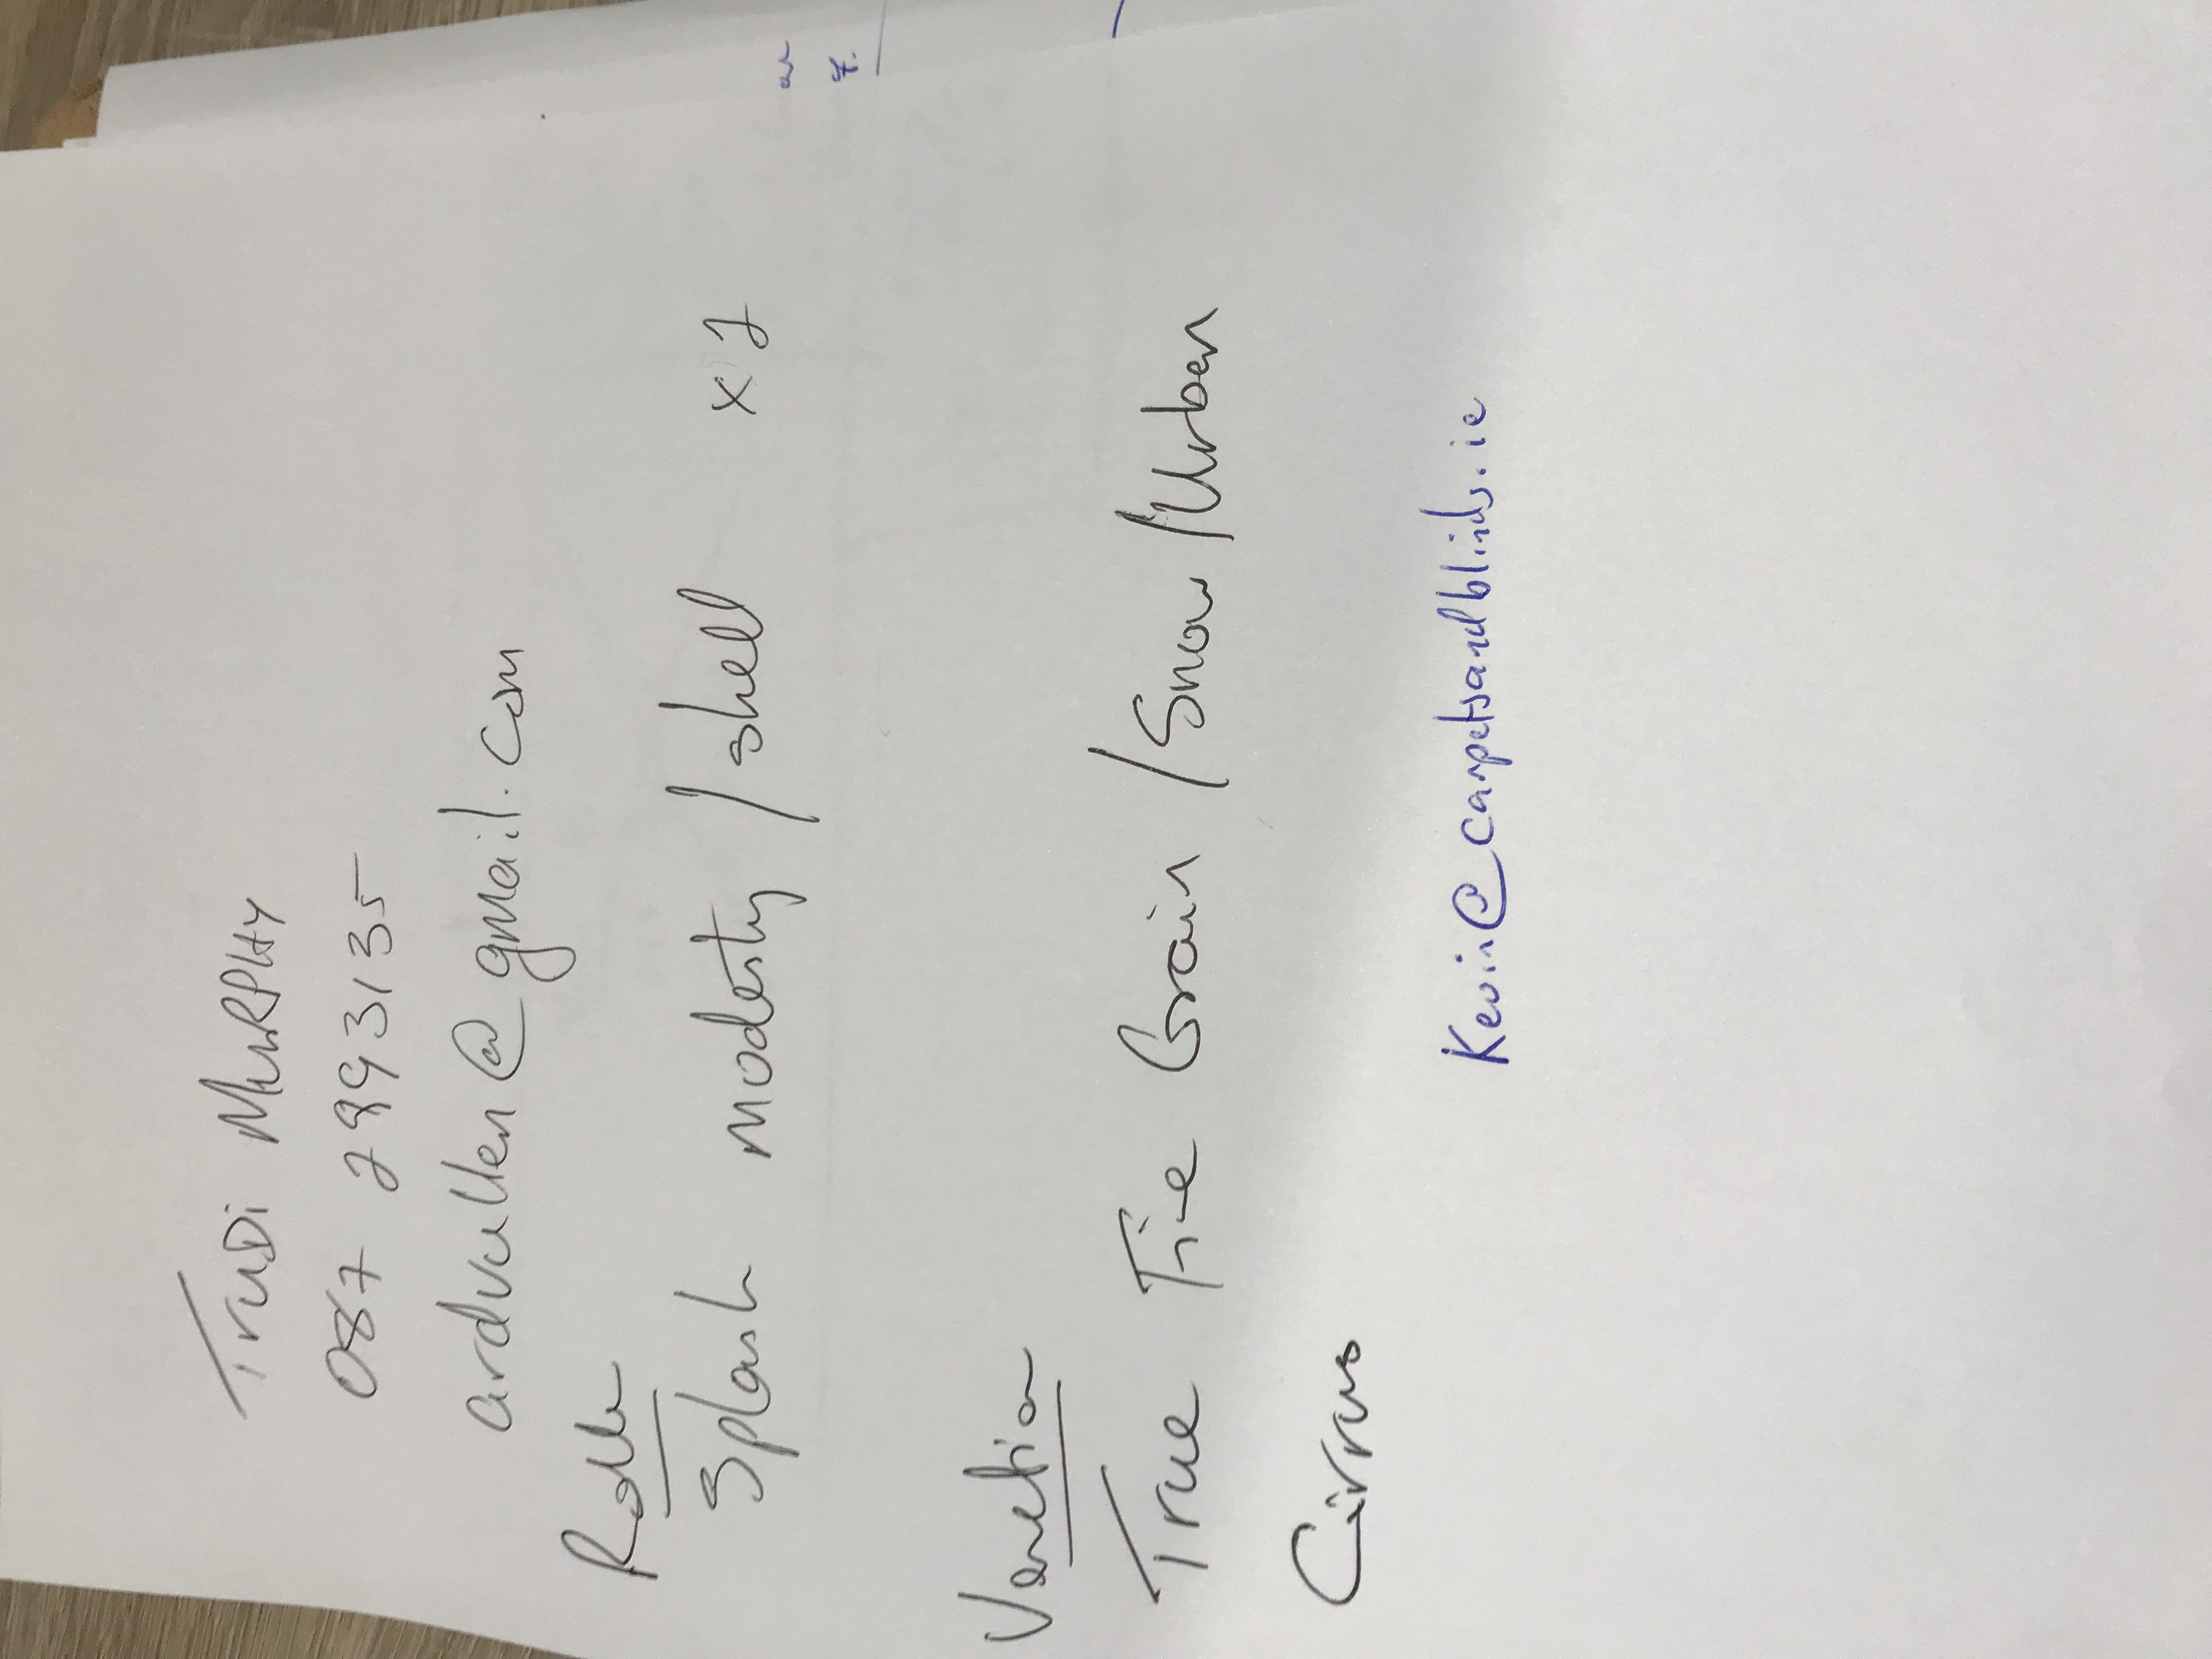 TruDi MuRPHY
087 2993135
ardvullen@gmail.com
Roller
Splash modesty / shell x 2
Venetian
True Fie Grain / Snow / Urban
Cirrus
Kevin@carpetsandblinds.ie